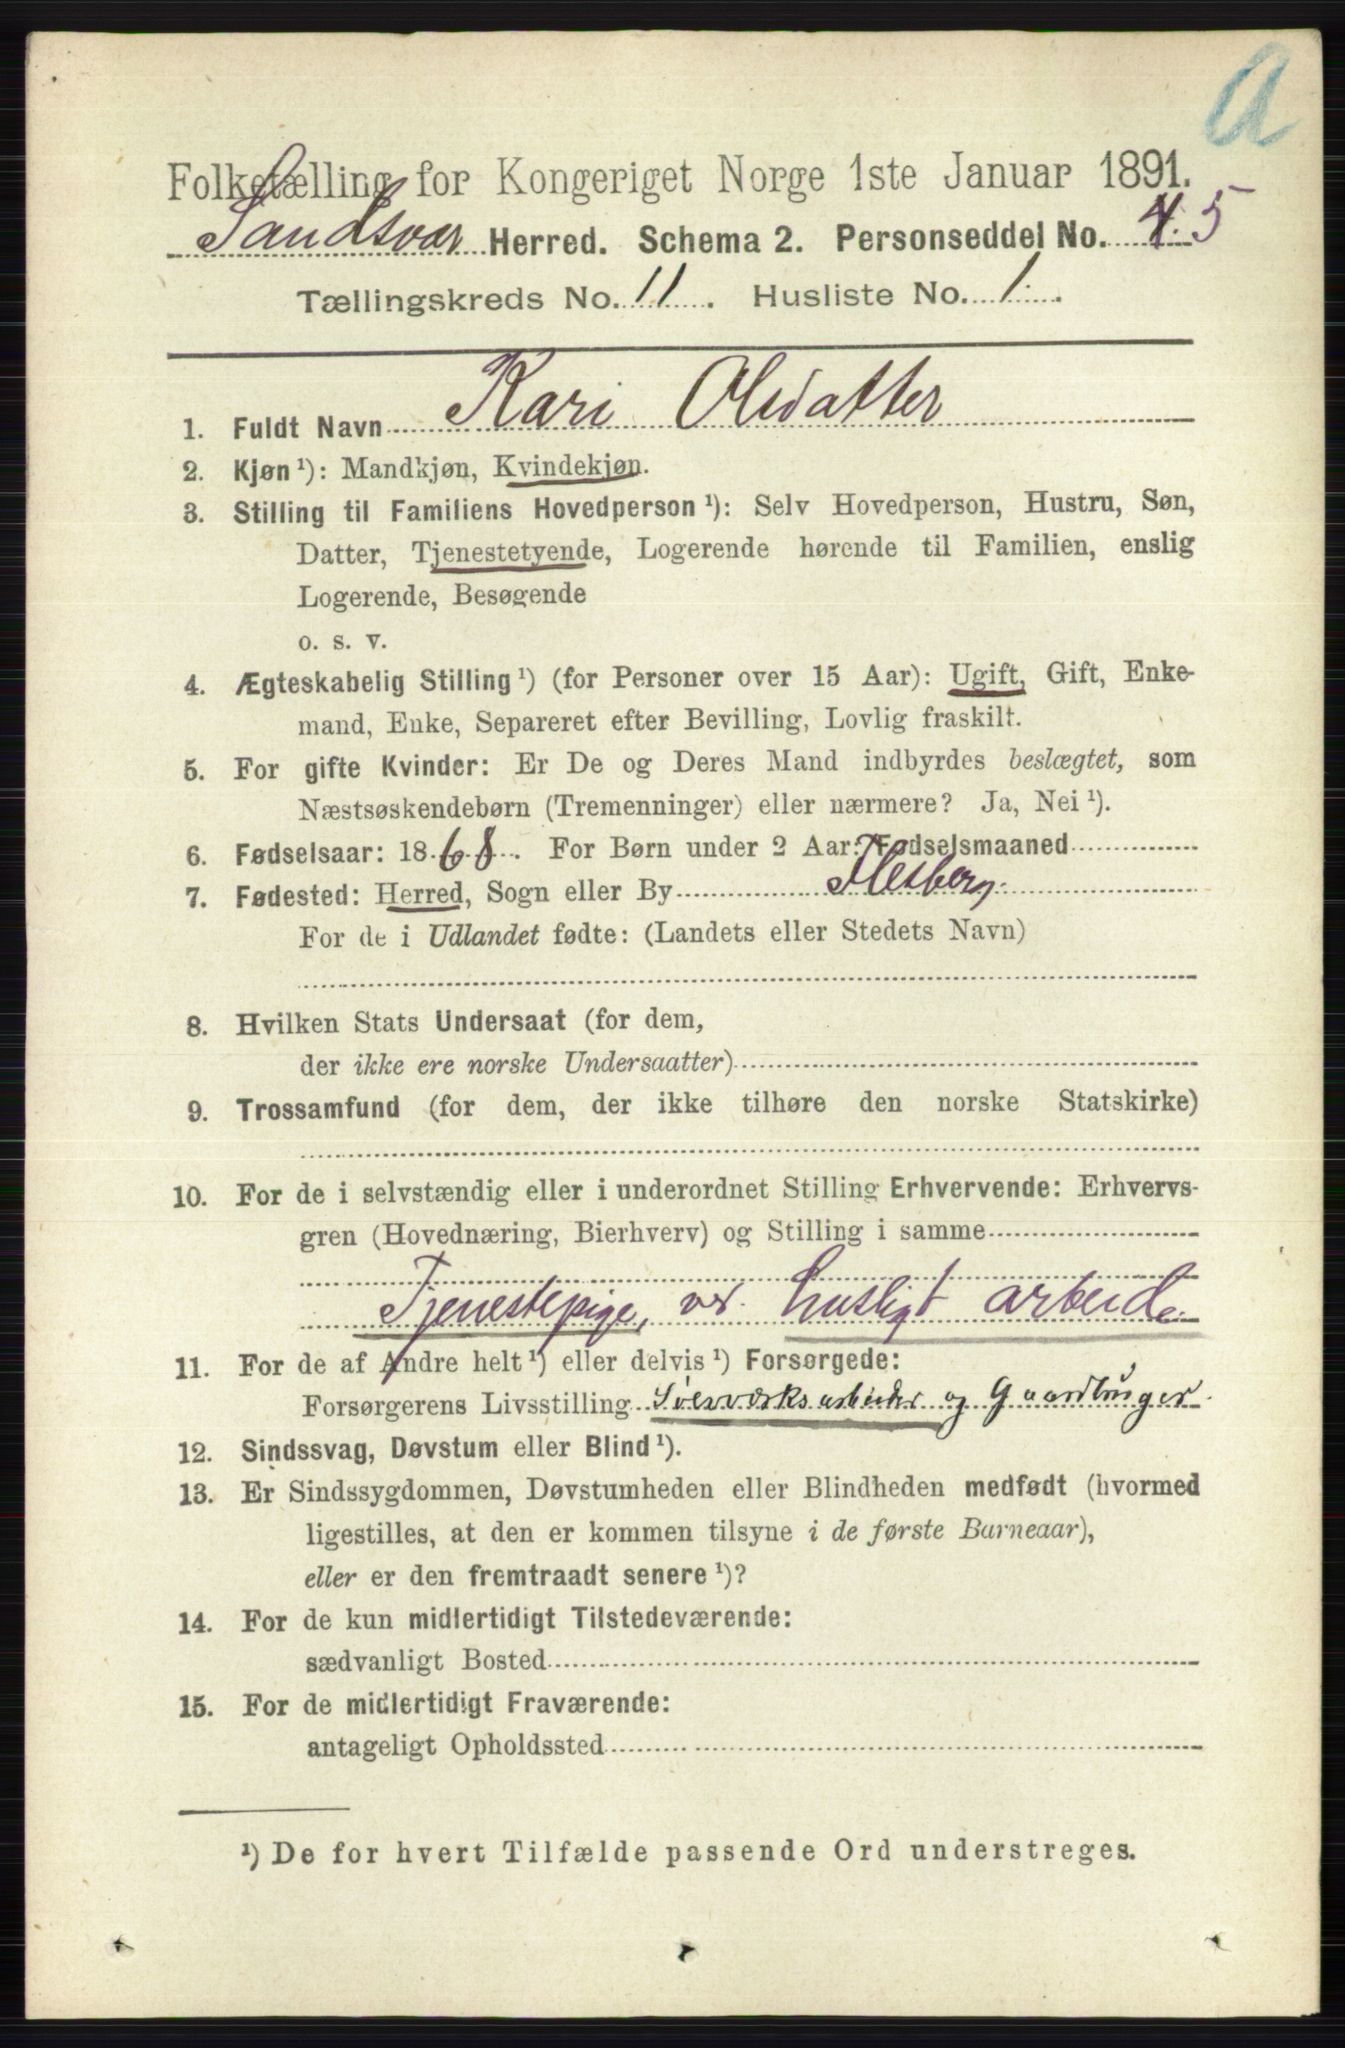 A
Folketælling for Kongeriget Norge 1ste Januar 1891.
Sandsvær Herred. Schema 2. Personseddel No. 4. 5
Tællingskreds No. 11. Husliste No. 1.
1. Fuldt Navn Kari Olsdatter
2. Kjøn ¹): Mandkjøn, Kvindekjøn.
3. Stilling til Familiens Hovedperson ¹): Selv Hovedperson, Hustru, Søn,
Datter, Tjenestetyende, Logerende hørende til Familien, enslig
Logerende, Besøgende
o. s. v.
4. Ægteskabelig Stilling ¹) (for Personer over 15 Aar): Ugift, Gift, Enke-
mand, Enke, Separeret efter Bevilling, Lovlig fraskilt.
5. For gifte Kvinder: Er De og Deres Mand indbyrdes beslægtet, som
Næstsøskendebørn (Tremenninger) eller nærmere? Ja, Nei ¹).
6. Fødselsaar: 1868. For Børn under 2 Aar: Fødselsmaaned
7. Fødested: Herred, Sogn eller By Flesberg.
For de i Udlandet fødte: (Landets eller Stedets Navn)
8. Hvilken Stats Undersaat (for dem,
der ikke ere norske Undersaatter)
9. Trossamfund (for dem, der ikke tilhøre den norske Statskirke)
10. For de i selvstændig eller i underordnet Stilling Erhvervende: Erhvervs-
gren (Hovednæring, Bierhverv) og Stilling i samme
Tjenestepige, ved husligt arbeide
11. For de af Andre helt ¹) eller delvis ¹) Forsørgede:
Forsørgerens Livsstilling Sølvværksarbeider og Gaardbruger.
12. Sindssvag, Døvstum eller Blind ¹).
13. Er Sindssygdommen, Døvstumheden eller Blindheden medfødt (hvormed
ligestilles, at den er kommen tilsyne i de første Barneaar),
eller er den fremtraadt senere ¹)?
14. For de kun midlertidigt Tilstedeværende:
sædvanligt Bosted
15. For de midlertidigt Fraværende:
antageligt Opholdssted
¹) De for hvert Tilfælde passende Ord understreges.